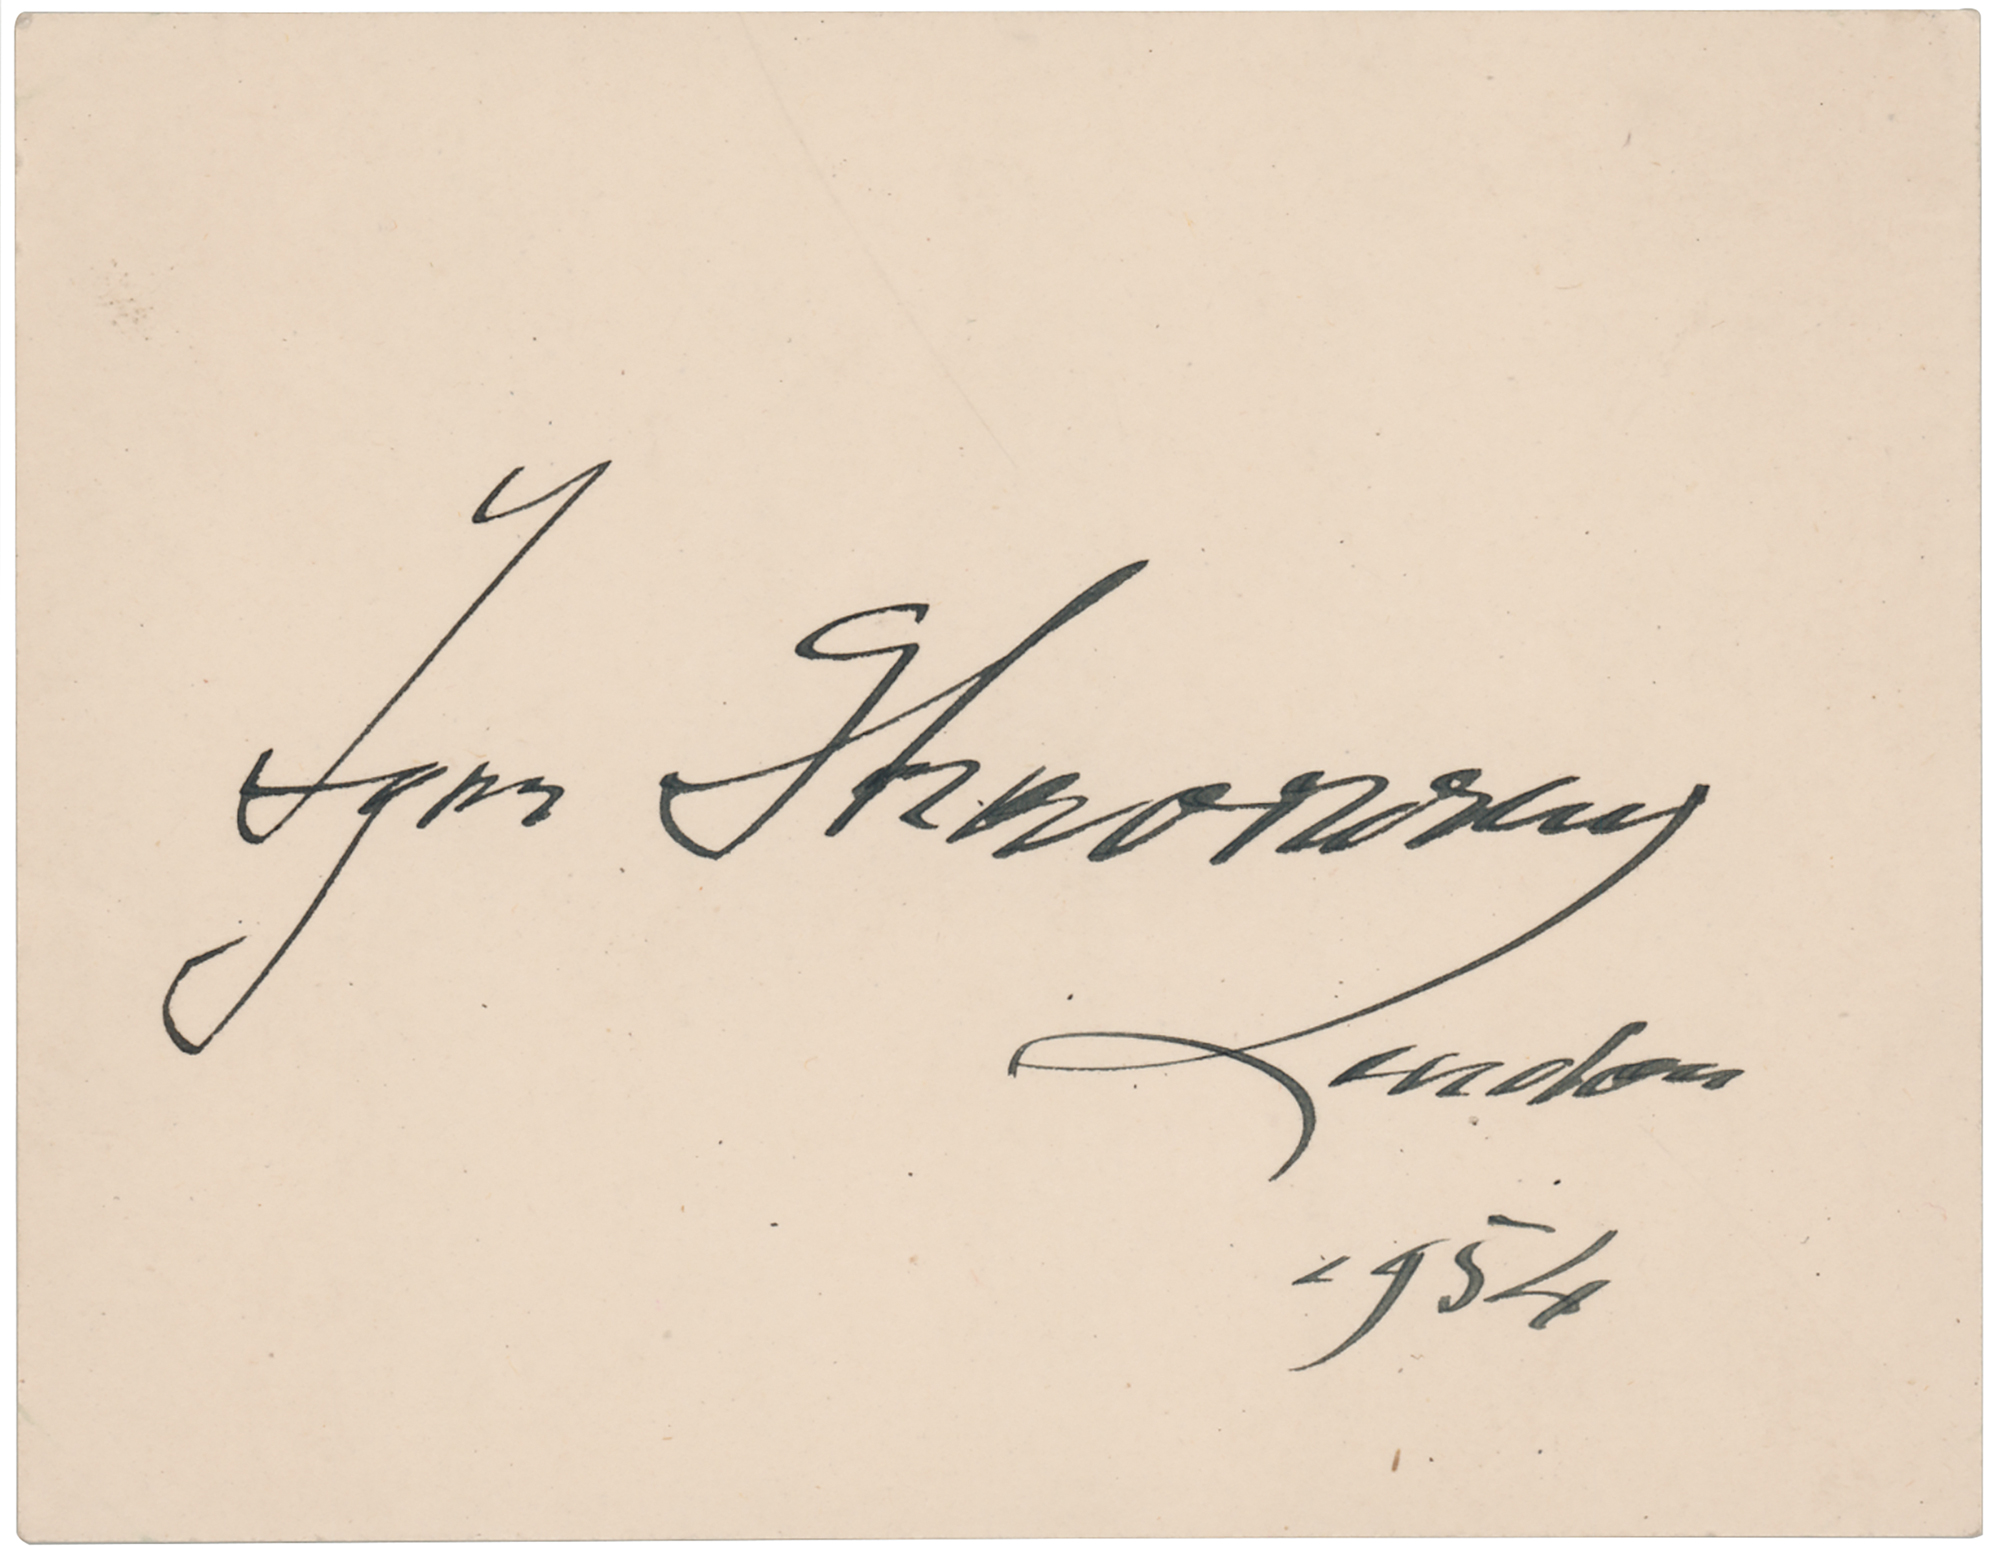 Igor Strawinsky
London
1954